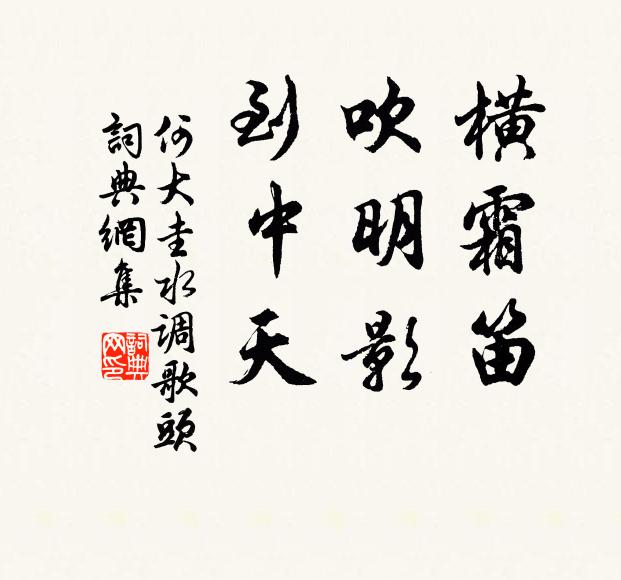 橫霜笛
吹明影
到中天
何大圭水调歌頭
詞典網集
詞典网印